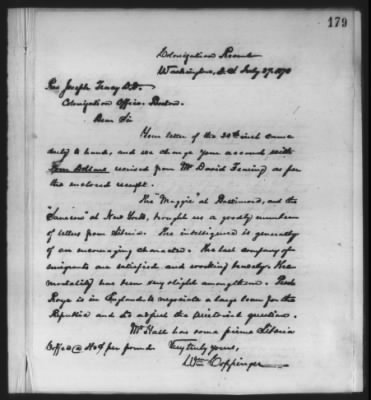 179
Colonization Rooms
Washington, D.C. July 27, 1870
Rev. Joseph Tracy D.D.
Colonization Office. Boston.
Dear Sir
Your letter of the inst. came
duly to hand, and we charge your account with
Dollars received from Mr David as per
the enclosed receipt.
The "Maggie" at Baltimore, and the
at New York, brought us a goodly number
of letters from Liberia. The intelligence is generally
of an encouraging character. The last company of
emigrants are satisfied and working bravely. The
mortality has been very slight among them. Prest
Roye is in England to negotiate a large loan for the
Republic and to adjust the territorial question.
Mr Hall has some prime Liberia
Coffee @ per pound. Very truly yours,
Wm Coppinger